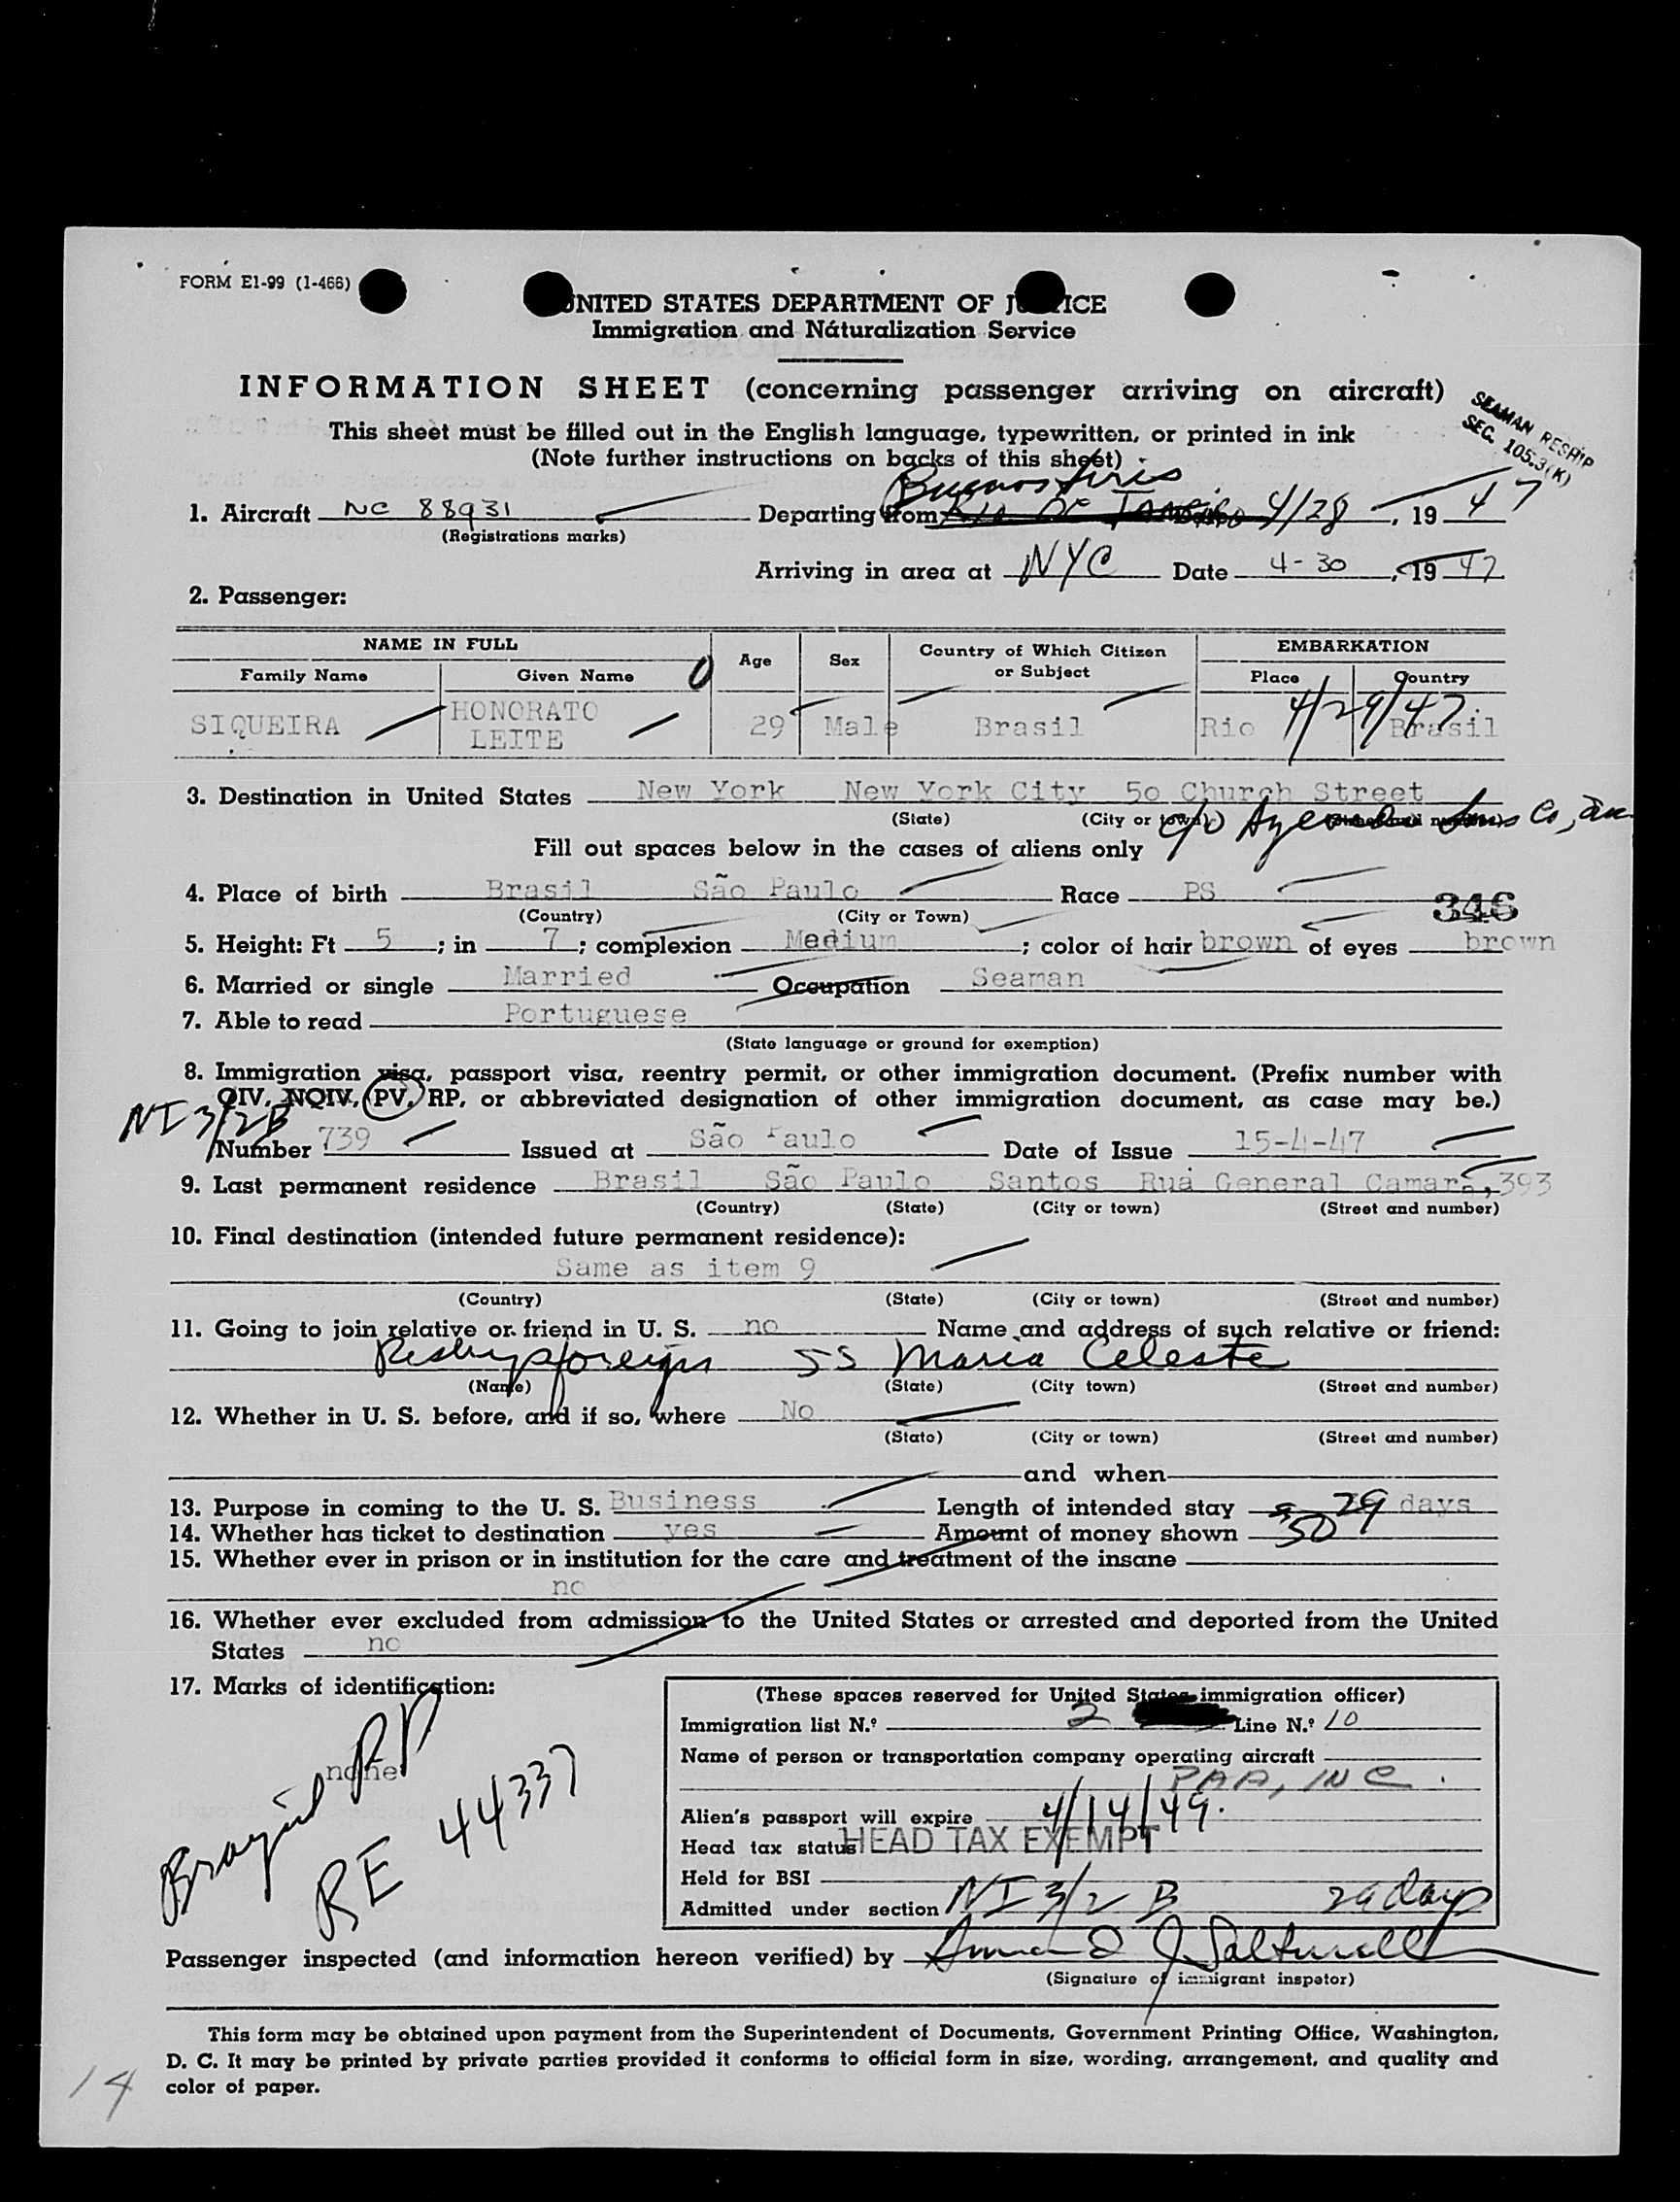 FORM E1-99 (1-466)
UNITED STATES DEPARTMENT OF J ICE
Immigration and Náturalization Service
INFORMATION SHEET (concerning passenger arriving on aircraft)
SEAMAN RESHIP
SEC. 105.3(K)
This sheet must be filled out in the English language, typewritten, or printed in ink
(Note further instructions on backs of this sheet)
Buenos Aires
1. Aircraft NC 88931 Departing from Rio De Janeiro 4/28, 1947
(Registrations marks)
Arriving in area at NYC Date 4-30, 1947
2. Passenger:
NAME IN FULL Age Sex Country of Which Citizen or Subject EMBARKATION
Family Name Given Name Place Country
SIQUEIRA HONORATO LEITE 29 Male Brasil Rio 4/29/47 Brasil
3. Destination in United States New York New York City 50 Church Street
(State) (City or town) (Street and number)
c/o Co,
Fill out spaces below in the cases of aliens only
4. Place of birth Brasil São Paulo Race PS
(Country) (City or Town)
346
5. Height: Ft 5; in 7; complexion Medium; color of hair brown of eyes brown
6. Married or single Married Occupation Seaman
7. Able to read Portuguese
(State language or ground for exemption)
8. Immigration visa, passport visa, reentry permit, or other immigration document. (Prefix number with
QIV, NQIV, PV, RP, or abbreviated designation of other immigration document, as case may be.)
NI 3/2B
Number 739 Issued at São Paulo Date of Issue 15-4-47
9. Last permanent residence Brasil São Paulo Santos Rua General Camara, 393
(Country) (State) (City or town) (Street and number)
10. Final destination (intended future permanent residence):
Same as item 9
(Country) (State) (City or town) (Street and number)
11. Going to join relative or friend in U. S. no Name and address of such relative or friend:
Reship foreign SS Maria Celeste
(Name) (State) (City town) (Street and number)
12. Whether in U. S. before, and if so, where No
(State) (City or town) (Street and number)
and when
13. Purpose in coming to the U. S. Business Length of intended stay 29 days
14. Whether has ticket to destination yes Amount of money shown $50
15. Whether ever in prison or in institution for the care and treatment of the insane
no
16. Whether ever excluded from admission to the United States or arrested and deported from the United
States no
17. Marks of identification:
none
Brazil PP
RE 44337
(These spaces reserved for United States immigration officer)
Immigration list N.º 2 Line N.º 10
Name of person or transportation company operating aircraft
PAA, INC.
Alien's passport will expire 4/14/49.
Head tax status HEAD TAX EXEMPT
Held for BSI
Admitted under section NI 3/2 B 29 days
Passenger inspected (and information hereon verified) by
(Signature of immigrant inspetor)
This form may be obtained upon payment from the Superintendent of Documents, Government Printing Office, Washington,
D. C. It may be printed by private parties provided it conforms to official form in size, wording, arrangement, and quality and
color of paper.
14